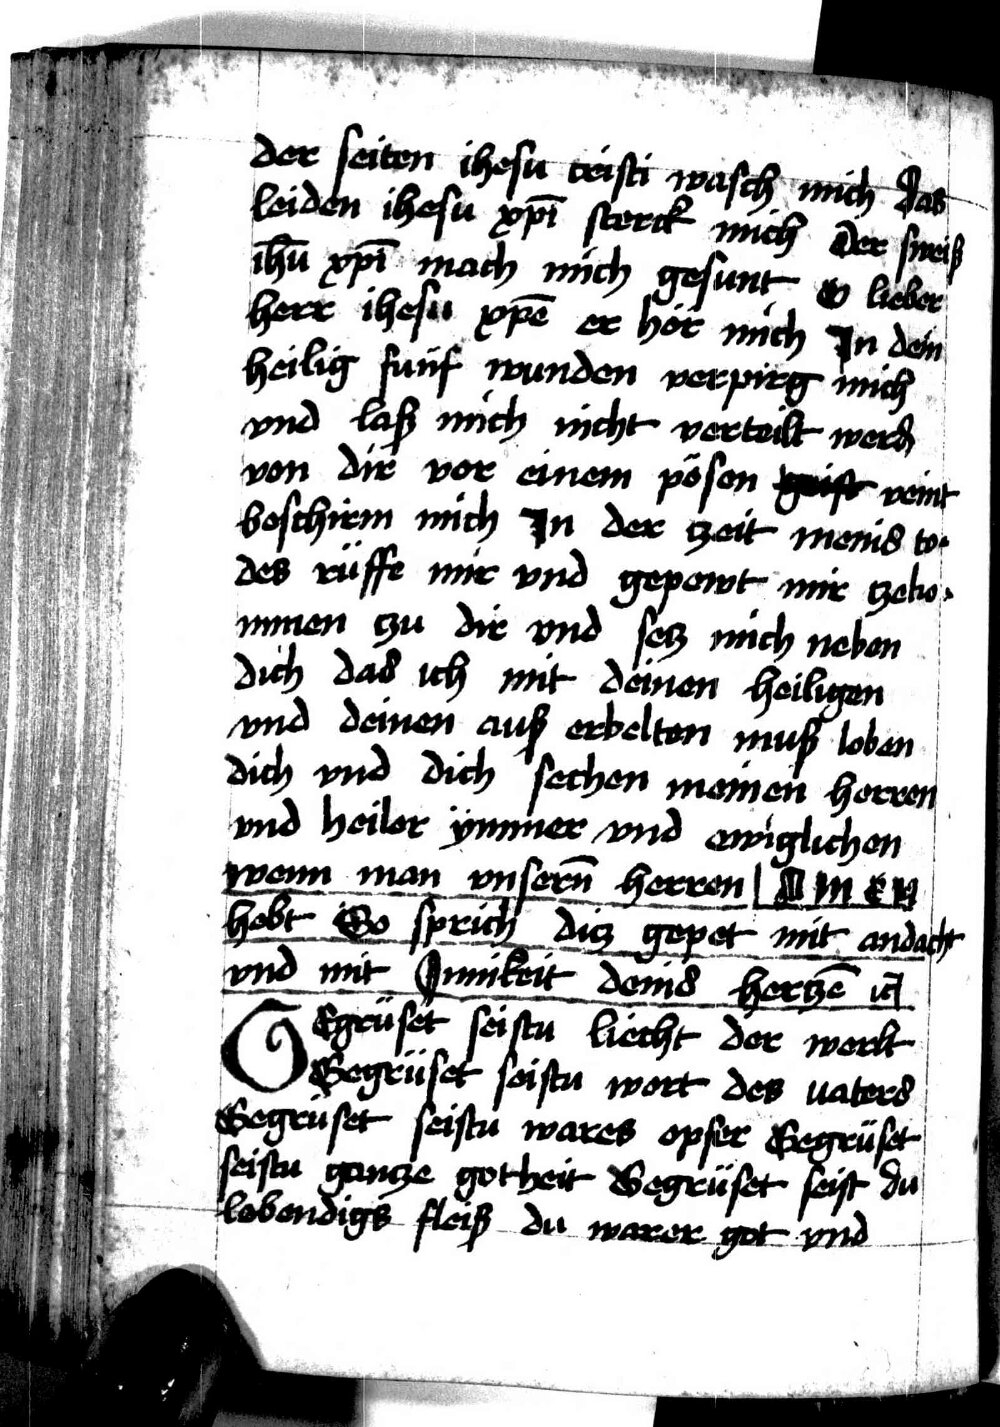 der seiten ihesu cristi wasch mich Das
leiden ihesu xpi̅ sterck mich Der sweiß
ih̅u xpi̅ mach mich gesunt O lieber
herr ihesu xpe̅ er hör mich In dein
heilig fünf wunden verpirg mich
vnd laß mich nicht verteilt werd
von dir vor einem pösen geist veint
beschirm mich In der tzeit meins to-
des rüffe mir vnd gepewt mir tzeko-
mmen tzu dir vnd setz mich neben
dich das ich mit deinen heiligen
vnd deinen auß erbelten muß loben
dich vnd dich sechen meinen herren
vnd heiler ymmer vnd ewiglichen
wenn man vnsern̅ herren | AMEN
hebt So sprich ditz gepet mit andacht
vnd mit Innikeit deins hertze̅
GEgrüset seistu liecht der werlt
Gegrüset seistu wort des vaters
Gegrüset seistu wares opfer Gegrüset
seistu gantze gotheit Gegrüset seist du
lebendigs fleiß du warer got vnd